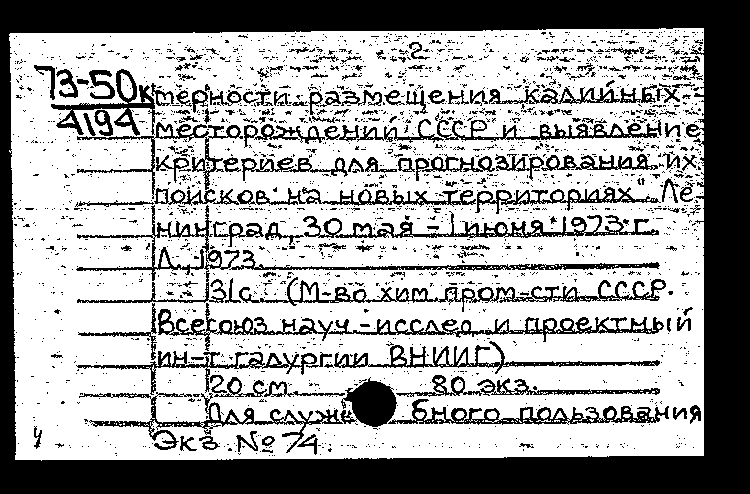 2
73-50к
4194
терности размещения калийных
месторождений СССР и выявление
критериев для прогнозирования их
поисков на новых территориях". Ле-
нинград, 30 мая - 1 июня 1973 г.
Л., 1973.
31с. (М-во хим. пром-сти СССР.
Всесоюз. науч.-исслед. и проектный
ин-т галургии ВНИИГ)
20 см. 80 экз.
Для служебного пользования
Экз. № 74.